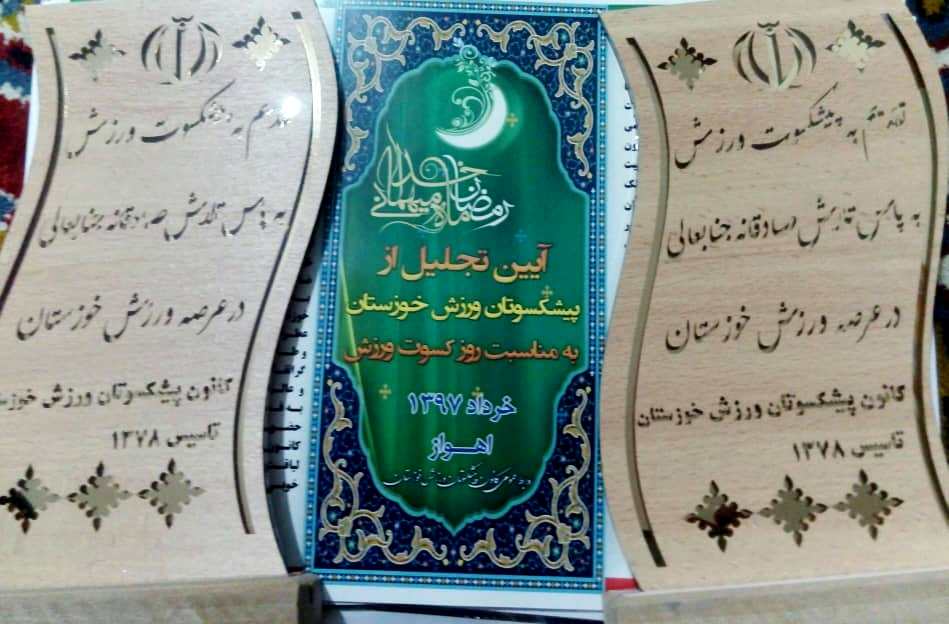 تقدیم به پیشکسوت ورزش
به پاس تلاش صادقانه جنابعالی
در عرصه ورزش خوزستان
کانون پیشکسوتان ورزش خوزستان
تاسیس ۱۳۷۸
رمضان ماه میهمانی خدا
آیین تجلیل از
پیشکسوتان ورزش خوزستان
به مناسبت روز کسوت ورزش
خرداد ۱۳۹۷
اهواز
روابط عمومی کانون پیشکسوتان ورزش خوزستان
تقدیم به پیشکسوت ورزش
به پاس تلاش صادقانه جنابعالی
در عرصه ورزش خوزستان
کانون پیشکسوتان ورزش خوز
تاسیس ۱۳۷۸